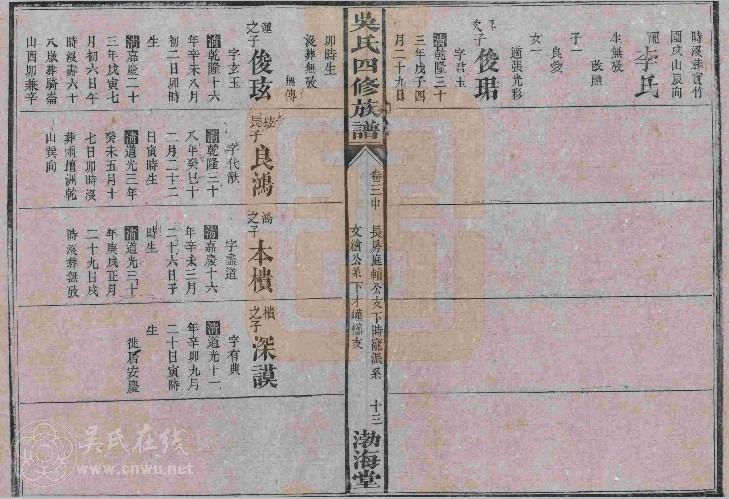 時沒葬實竹
園戌山辰向
寵李氏
生無攷
子一
良愛
女一
適張光彩
次子
俊珺
字君玉
清乾隆三十
三年戊子四
月二十九日
吳氏四修族譜
卷三中
長房庭輔公支下時寵派系
文繪公系下
十三
渤海堂
卯時生
沒葬無攷
無傳
之子
俊玹
字玄玉
清乾隆十六
年辛未八月
初二日卯時
生
清嘉慶二十
三年戊寅七
月初六日午
時沒壽六十
八歲葬騎崙
山酉卯兼辛
玹長子
良鴻
字代猷
清乾隆三十
八年癸巳十
二月二十二
日寅時生
清道光三年
癸未五月十
七日卯時沒
葬兩壇洲乾
山巽向
鴻之子
本樻
字盡道
清嘉慶十六
年辛未三月
二十六日子
時生
清道光三十
年庚戌正月
二十九日戌
時沒葬無攷
樻之子
深謨
字有典
清道光十一
年辛卯九月
二十日寅時
生
徙居安慶
吴氏在线
www.cnwu.net